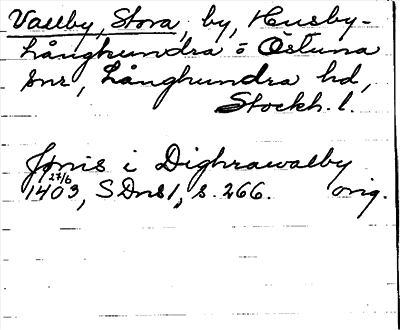 Vallby, Stora, by, Husby-
Långhundra o Östuna
snr, Långhundra hd,
Stockh. l.
Jønis i Dighrawalby
27/6
1403, SDns 1, s. 266. orig.